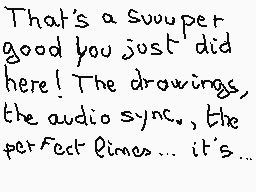 That's a suuuper
good you just did
here! The drawings,
the audio sync., the
perfect limes... it's...